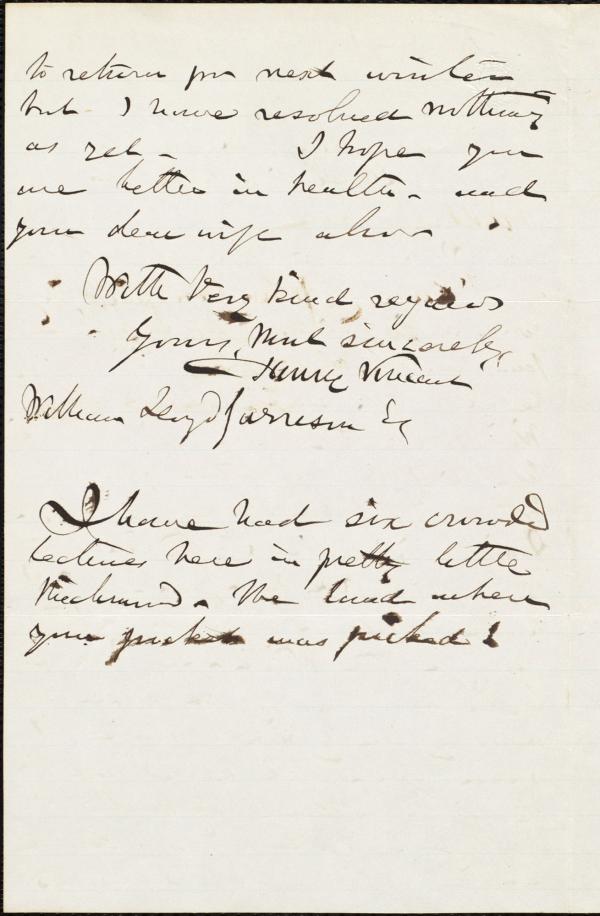 to return for next winter
but I have resolved nothing
as yet - I hope you
are better in health - and
your dear wife also
With Very kind regards
Yours, Most sincerely,
Henry Vincent
William Lloyd Garrison Esq
I have had six crowded
Lectures here in pretty little
Richmond. The land where
your pocket was picked!